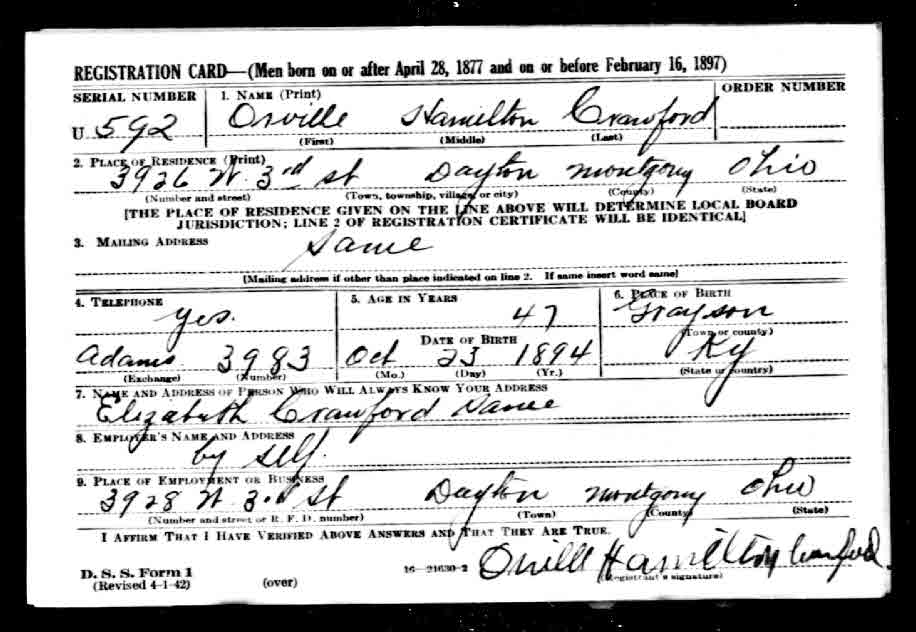 REGISTRATION CARD—(Men born on or after April 28, 1877 and on or before February 16, 1897)
SERIAL NUMBER 1. NAME (Print) ORDER NUMBER
U 592 Orville Hamilton Crawford
(First) (Middle) (Last)
2. PLACE OF RESIDENCE (Print)
3926 W. 3rd St Dayton Montgomy Ohio
(Number and street) (Town, township, village, or city) (County) (State)
[THE PLACE OF RESIDENCE GIVEN ON THE LINE ABOVE WILL DETERMINE LOCAL BOARD
JURISDICTION; LINE 2 OF REGISTRATION CERTIFICATE WILL BE IDENTICAL]
3. MAILING ADDRESS
Same
[Mailing address if other than place indicated on line 2. If same insert word same]
4. TELEPHONE 5. AGE IN YEARS 6. PLACE OF BIRTH
yes. 47 Grayson
DATE OF BIRTH (Town or county)
Adams 3983 Oct 23 1894 Ky
(Exchange) (Number) (Mo.) (Day) (Yr.) (State or country)
7. NAME AND ADDRESS OF PERSON WHO WILL ALWAYS KNOW YOUR ADDRESS
Elizabeth Crawford Same
8. EMPLOYER'S NAME AND ADDRESS
by self.
9. PLACE OF EMPLOYMENT OR BUSINESS
3928 W. 3rd St Dayton Montgomy Ohio
(Number and street or R. F. D. number) (Town) (County) (State)
I AFFIRM THAT I HAVE VERIFIED ABOVE ANSWERS AND THAT THEY ARE TRUE.
D. S. S. Form 1 16—21630-2 Orville Hamilton Crawford.
(Revised 4-1-42) (over) (Registrant's signature)